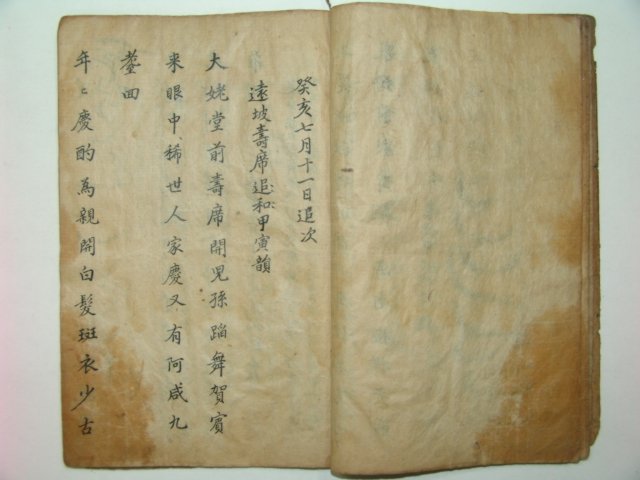 癸亥七月十一日追次
遠坡壽席追和甲寅韻
大姥堂前壽席開児孫蹈舞賀賓
來眼中稀世人家慶又有阿咸九
耋回
年〻慶酌為親開白髮斑衣少古